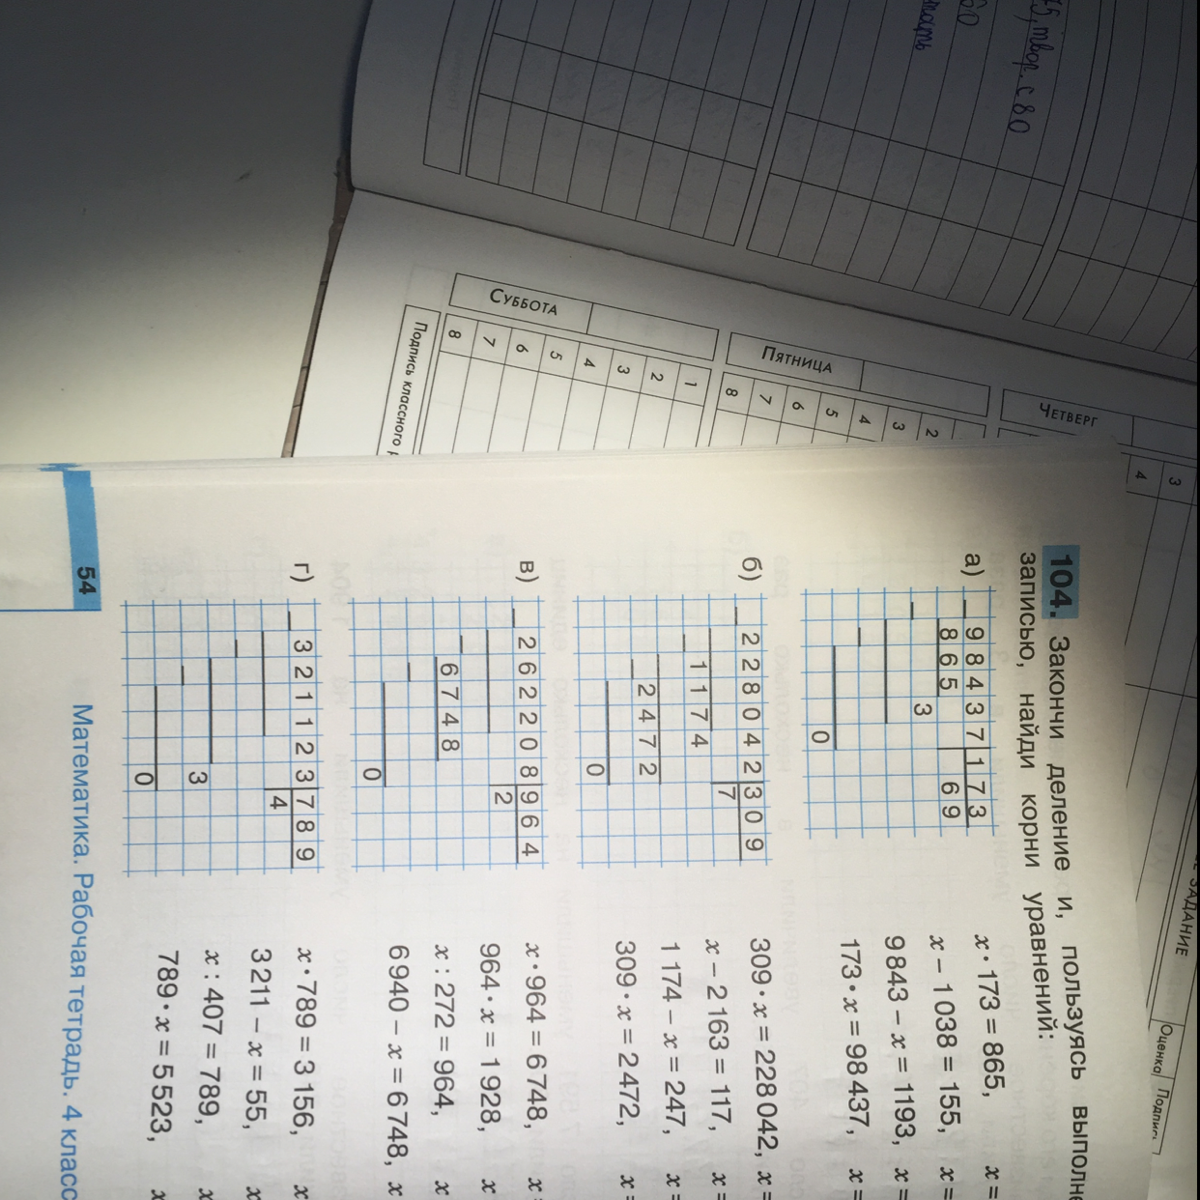 75, твор. с 80
60
СУББОТА
ПЯТНИЦА
ЧЕТВЕРГ
1
2
3
4
5
6
7
8
2
3
4
5
6
7
8
3
4
ПОДПИСЬ КЛАССНОГО
ЗАДАНИЕ
ОЦЕНКА
104. Закончи деление и, пользуясь
записью, найди корни уравнений:
а) 98437 173
865 69
3
0
x · 173 = 865, x =
x – 1 038 = 155, x =
9 843 – x = 1193, x =
173 · x = 98 437, x =
б) 228042 309
7
1174
2472
0
309 · x = 228 042, x =
x – 2 163 = 117, x =
1 174 – x = 247, x =
309 · x = 2 472, x =
в) 262208 964
2
6748
0
x · 964 = 6 748, x =
964 · x = 1 928, x
x : 272 = 964, x
6 940 – x = 6 748, x
г) 321123 789
4
3
0
x · 789 = 3 156, x
3 211 – x = 55, x
x : 407 = 789, x
789 · x = 5 523, x
54
Математика. Рабочая тетрадь. 4 класс